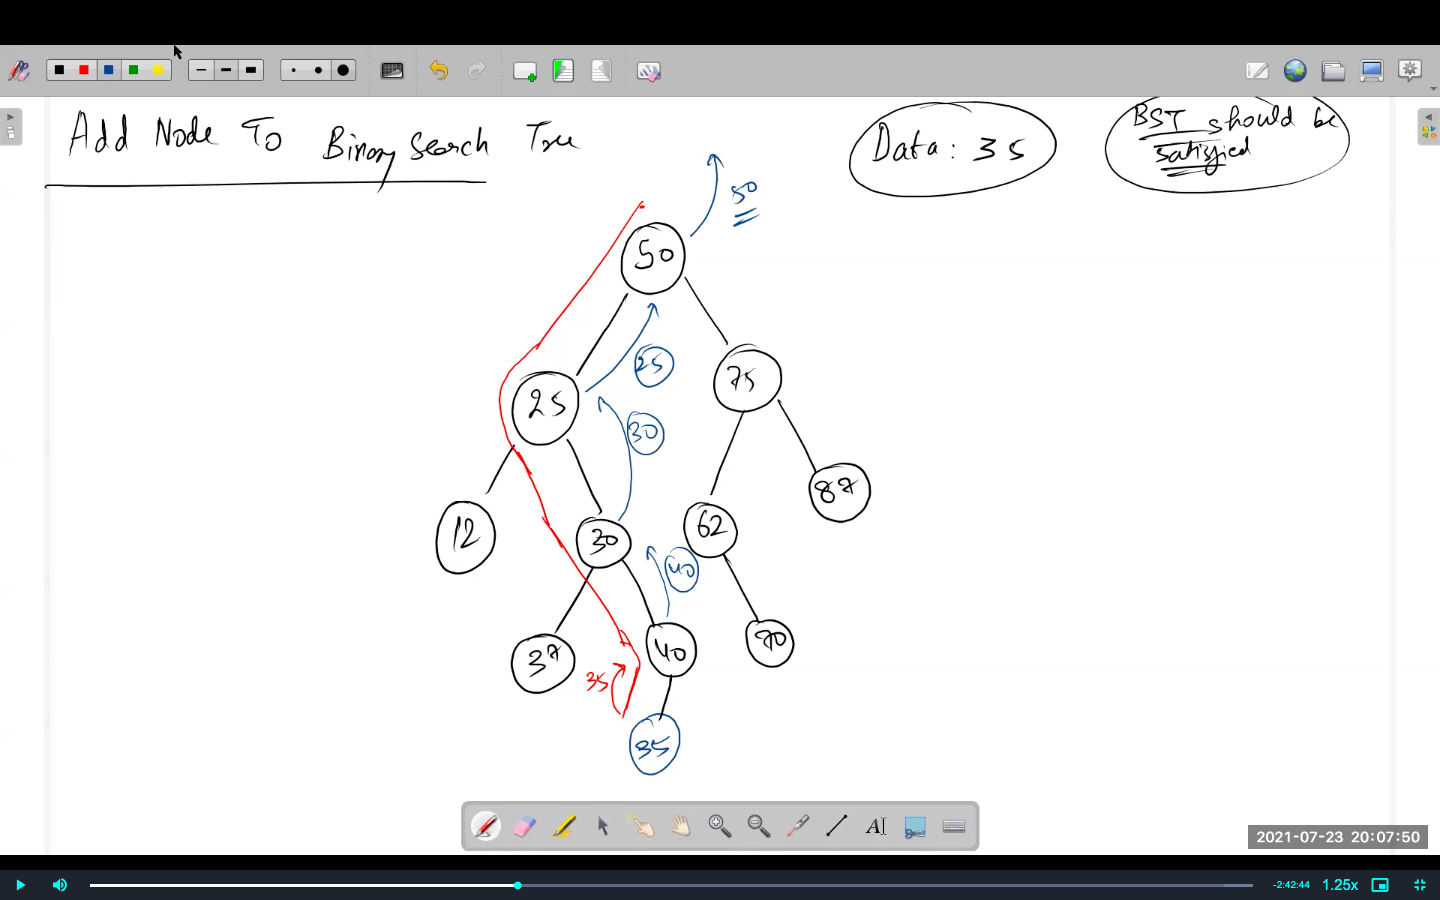 Add Node To Binary Search Tree
Data: 35
BST should be
satisfied
50
50
25
75
25
30
87
12
30
62
40
37
40
70
35
35
AI
2021-07-23 20:07:50
-2:42:44
1.25x